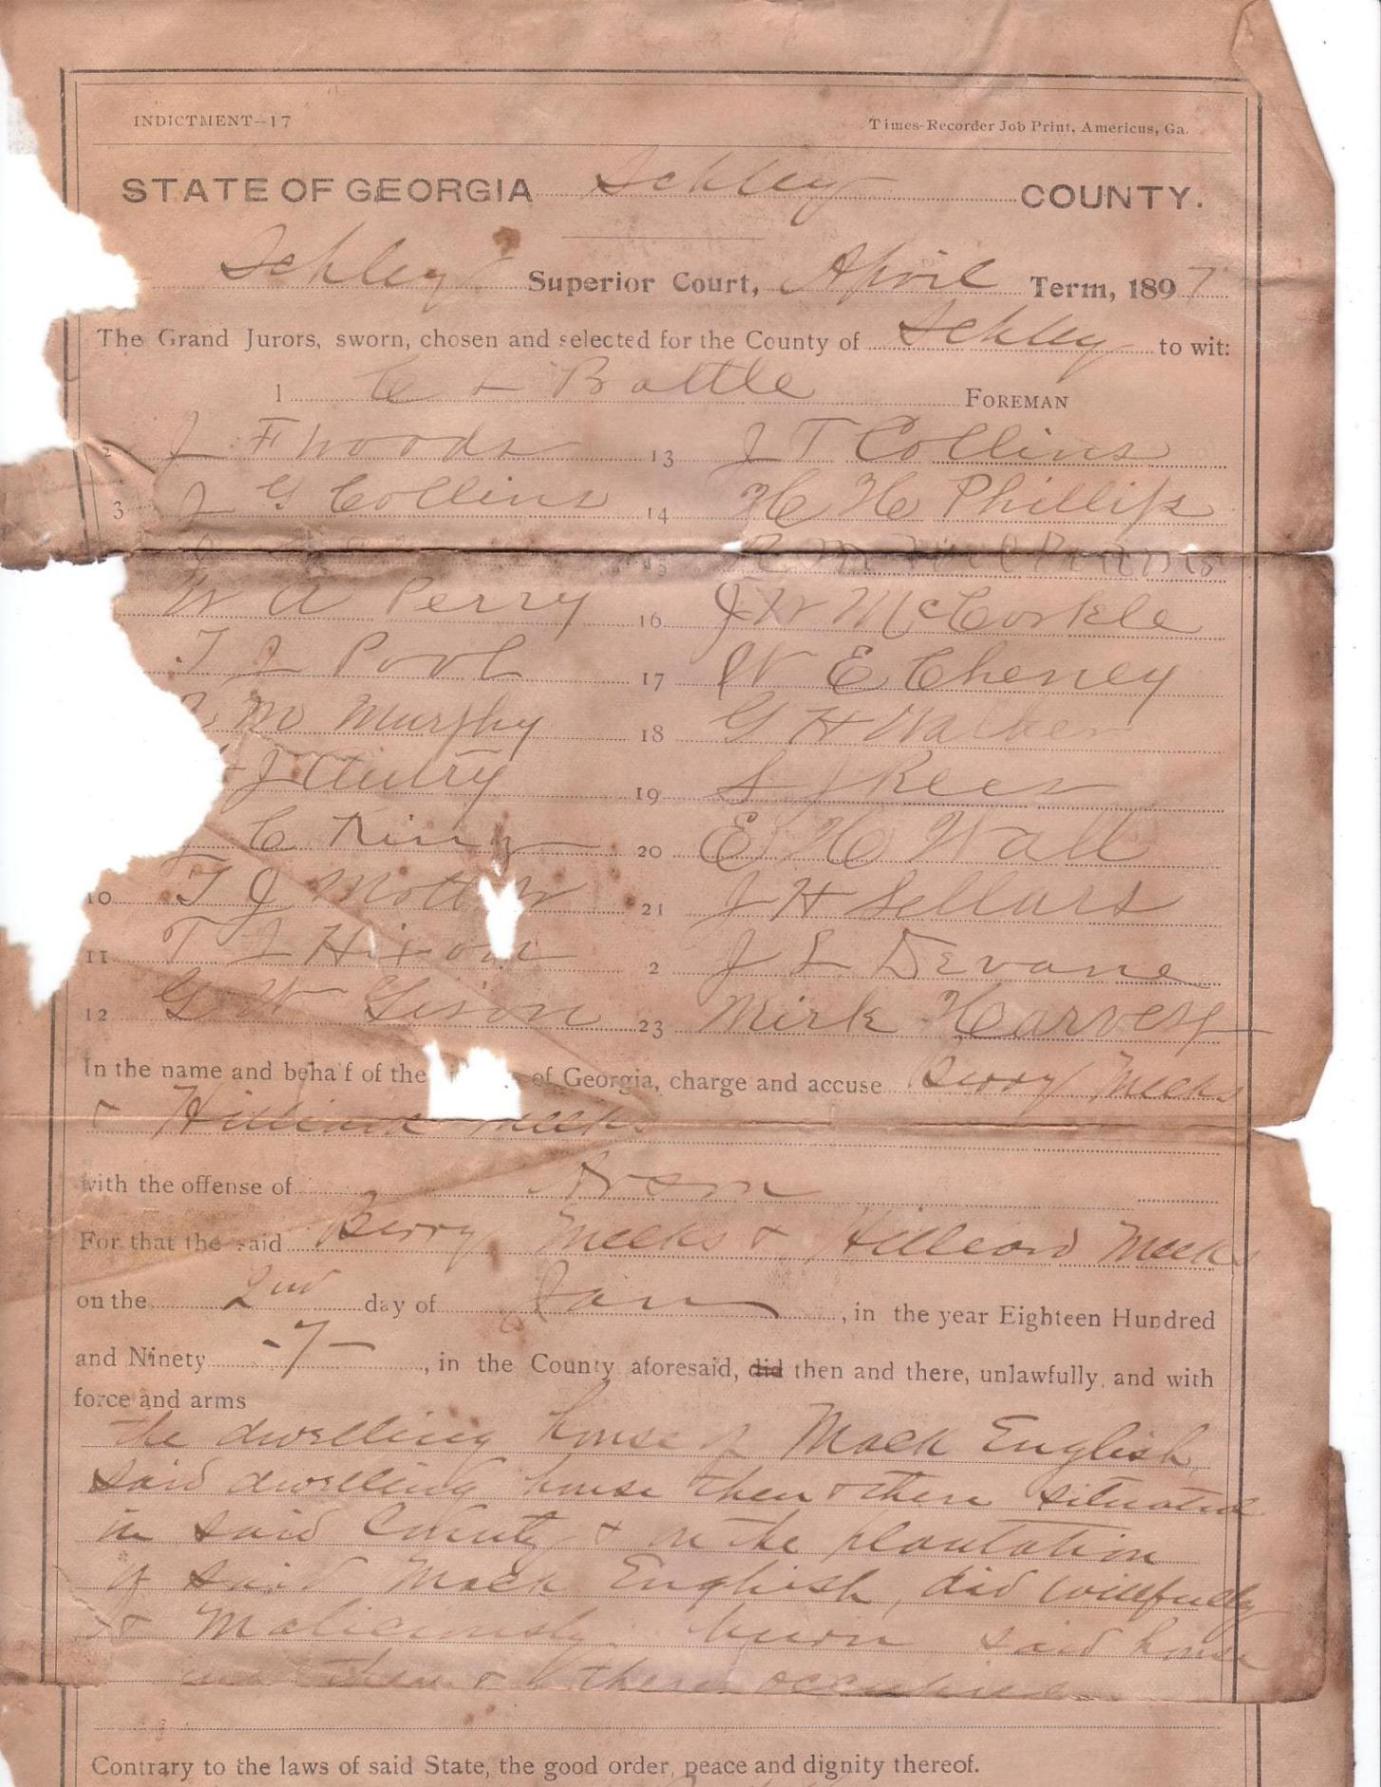 INDICTMENT--17 Times-Recorder Job Print, Americus, Ga.
STATE OF GEORGIA Schley COUNTY.
Schley Superior Court, April Term, 1897
The Grand Jurors, sworn, chosen and selected for the County of Schley to wit:
1 C L Battle FOREMAN
2 J F Woods 13 J T Collins
3 J G Collins 14 H H Phillips
15 R M
W A Perry 16 J W McCorkle
T J Pool 17 W E Cheney
M Murphy 18 G H Walker
J Autry 19 S J Rees
C King 20 E H Wall
10 T J 21 J H Sellars
11 T J Hixon 2 J L Devane
12 G W Sison 23 Mirk Harvey
In the name and behalf of the of Georgia, charge and accuse Berry Meeks
& Hilliard Meeks
with the offense of Arson
For that the said Berry Meeks & Hilliard Meeks
on the 2nd day of Jan, in the year Eighteen Hundred
and Ninety -7-, in the County aforesaid, did then and there, unlawfully and with
force and arms
the dwelling house of Mack English,
said dwelling house then & there situated
in said County & on the plantation
of said Mack English, did willfully
& Maliciously burn said house
then & there occupied
Contrary to the laws of said State, the good order, peace and dignity thereof.